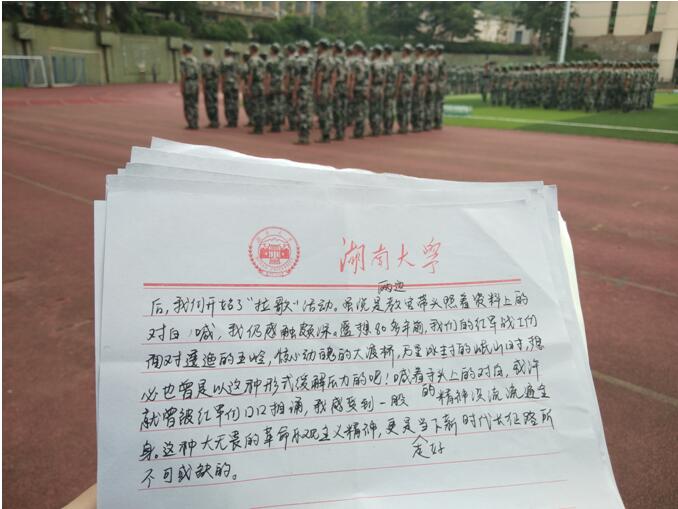 湖南大学
后,我们开始了"拉歌"活动。虽说是教官带头照着资料上的
两边
对白 喊,我仍感触颇深。遥想80多年前,我们的红军战士们
面对逶迤的五岭,惊心动魄的大渡桥,万里冰封的岷山时,想
必也曾是以这种形式缓解压力的吧!喊着手头上的对白,或许
就曾被红军们口口相诵,我感受到一股 的精神没流流遍全
身。这种大无畏的革命乐观主义精神,更是当下新时代长征路所
走好
不可或缺的。